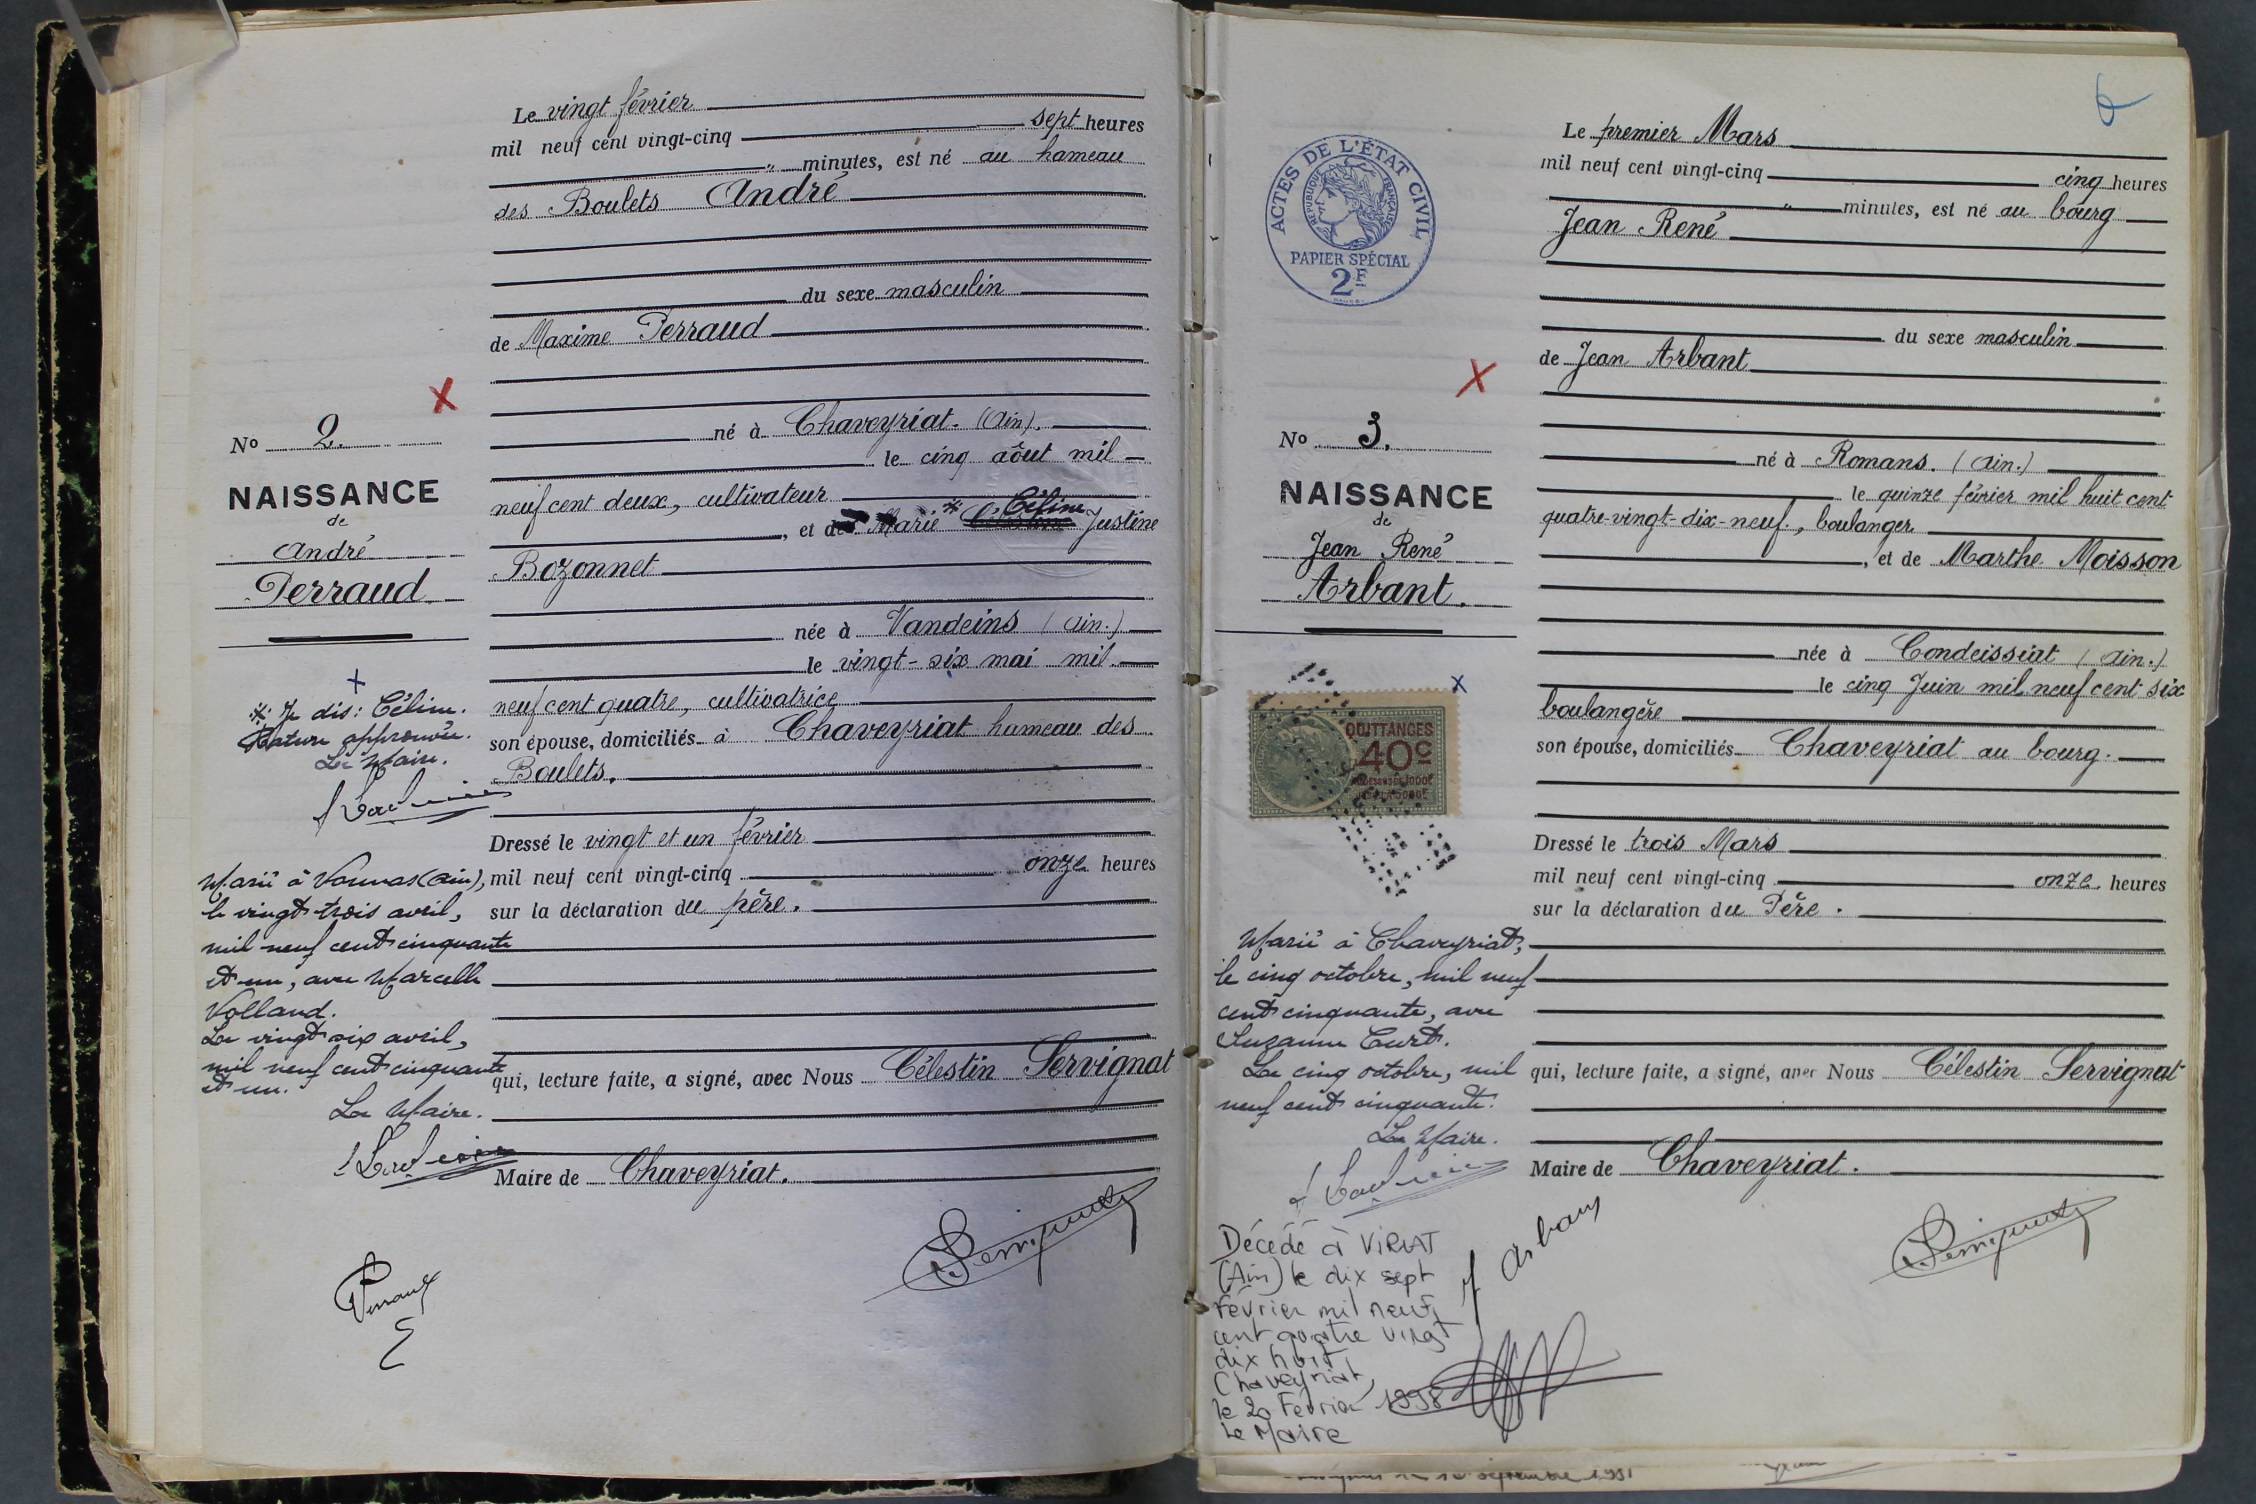 Le vingt février
mil neuf cent vingt-cinq sept heures
" minutes, est né au hameau
des Boulets André
du sexe masculin
de Maxime Perraud
né à Chaveyriat. (Ain).
le cinq août mil
neuf cent deux, cultivateur
, et de Marie * Céline Justine
Bozonnet
née à Vandeins (Ain.)
le vingt-six mai mil
neuf cent quatre, cultivatrice
son épouse, domiciliés à Chaveyriat hameau des
Boulets.
Dressé le vingt et un février
mil neuf cent vingt-cinq onze heures
sur la déclaration du père.
qui, lecture faite, a signé, avec Nous Célestin Servignat
Maire de Chaveyriat.
No 2.
NAISSANCE
de
André
Perraud
* dis: Céline.
Rature approuvée.
Le Maire.
Marié à Vonnas (Ain),
le vingt-trois avril,
mil neuf cent cinquante
et un, avec Marcelle
Volland.
Le vingt six avril,
mil neuf cent cinquante
et un.
Le Maire.
6
ACTES DE L'ÉTAT CIVIL
RÉPUBLIQUE FRANÇAISE
PAPIER SPÉCIAL
2F
Le premier Mars
mil neuf cent vingt-cinq cinq heures
" minutes, est né au bourg
Jean René
du sexe masculin
de Jean Arbant
né à Romans. (Ain.)
le quinze février mil huit cent
quatre-vingt-dix-neuf, boulanger
, et de Marthe Moisson
née à Condeissiat (Ain.)
le cinq Juin mil neuf cent six
boulangère
son épouse, domiciliés Chaveyriat au bourg.
Dressé le trois Mars
mil neuf cent vingt-cinq onze heures
sur la déclaration du Père.
qui, lecture faite, a signé, avec Nous Célestin Servignat
Maire de Chaveyriat.
No 3.
NAISSANCE
de
Jean René
Arbant.
QUITTANCES
40c
Marié à Chaveyriat,
le cinq octobre, mil neuf
cent cinquante, avec
Suzanne Curt.
Le cinq octobre, mil
neuf cent cinquante.
Le Maire.
J Arbant
Décédé à VIRIAT
(Ain) le dix sept
Février mil neuf
cent quatre vingt
dix huit
Chaveyriat,
le 20 Février 1998
Le Maire